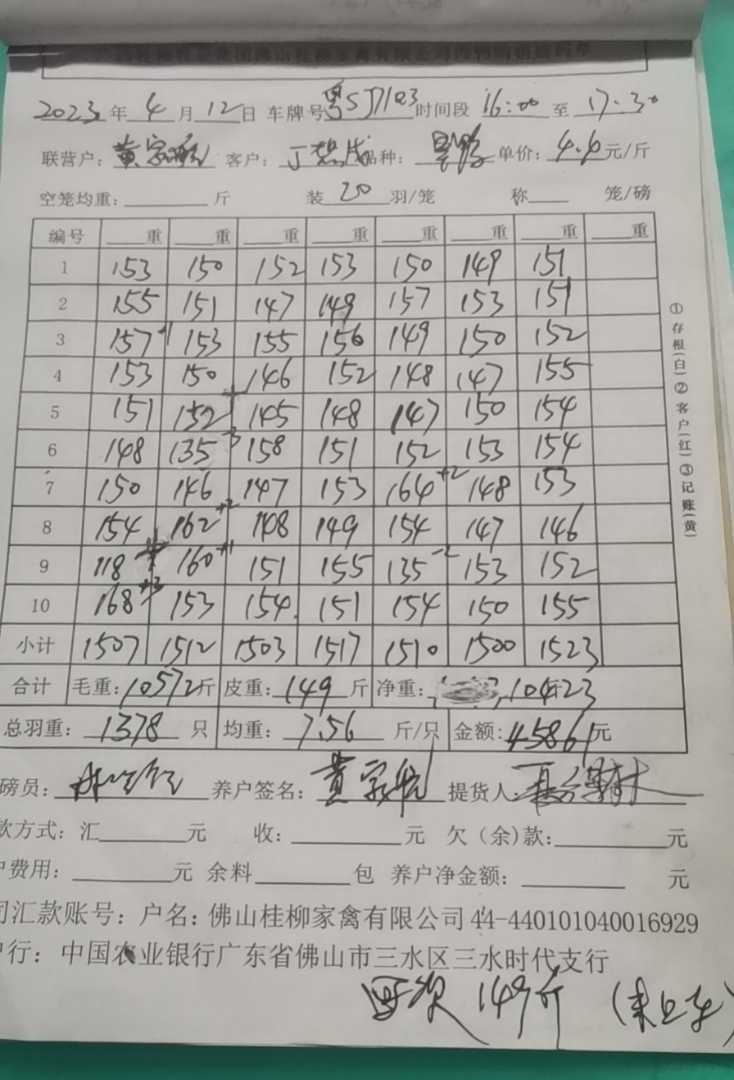 2023年4月12日 车牌号粤SJ7103时间段16:00至17:30
联营户:黄家 客户:丁 品种: 单价:4.4元/斤
空笼均重: 斤 装20羽/笼 称 笼/磅
编号 重 重 重 重 重 重 重 重
1 153 150 152 153 150 149 151
2 155 151 147 149 157 153 151
3 157 +1 153 155 156 149 150 152
4 153 150 146 152 148 147 155
5 151 152 145 148 147 150 154
6 148 135 -3 158 151 152 153 154
7 150 146 147 153 164 +2 148 153
8 154 162 +2 148 149 154 147 146
9 118 160 +1 151 155 135 -2 153 152
10 168 +3 153 154 151 154 150 155
小计 1507 1512 1503 1517 1510 1500 1523
合计 毛重:10572斤 皮重:149斤 净重:10423
总羽重:1378只 均重:7.56斤/只 金额:45861元
磅员: 养户签名:黄家 提货人:
款方式:汇 元 收: 元 欠(余)款: 元
户费用: 元 余料 包 养户净金额: 元
司汇款账号:户名:佛山桂柳家禽有限公司44-440101040016929
户行:中国农业银行广东省佛山市三水区三水时代支行
149斤
①存根(白)②客户(红)③记账(黄)